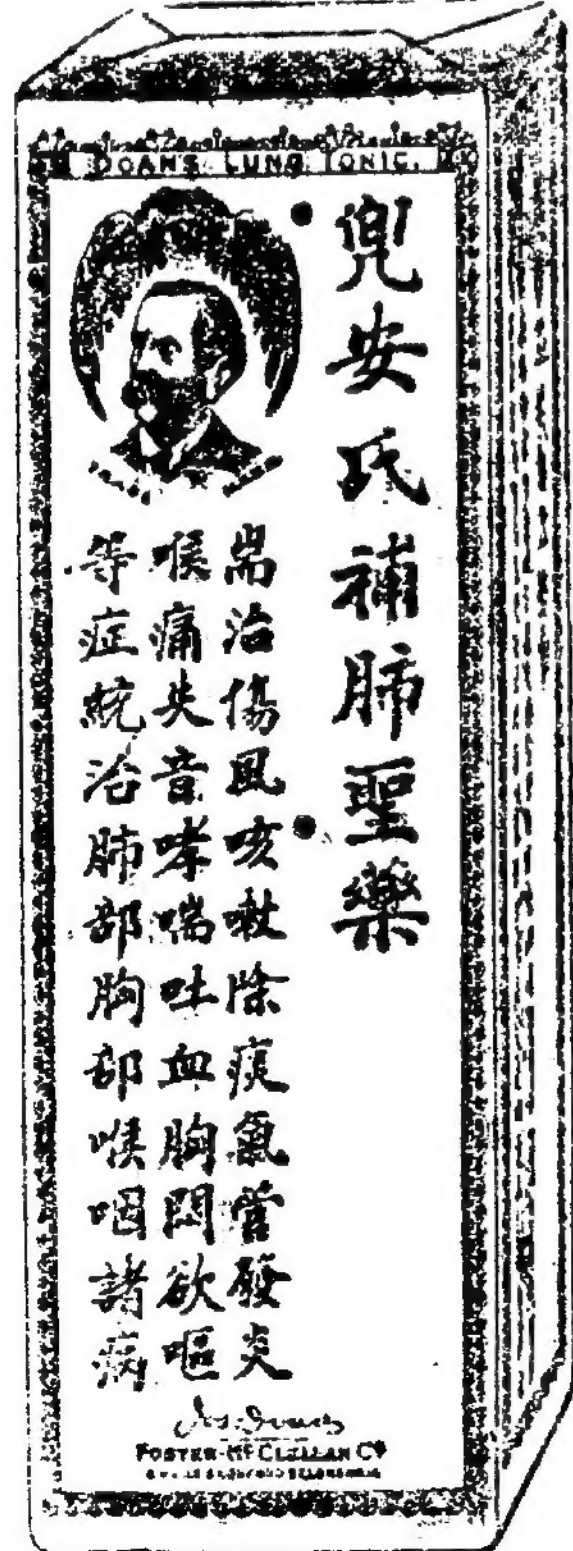 DOAN'S LUNG TONIC.
兜安氏補肺聖藥
耑治傷風咳嗽除痰氣管發炎
喉痛失音哮喘吐血胸悶欲嘔
等症統治肺部胸部喉咽諸病
FOSTER-McCLELLAN Cº